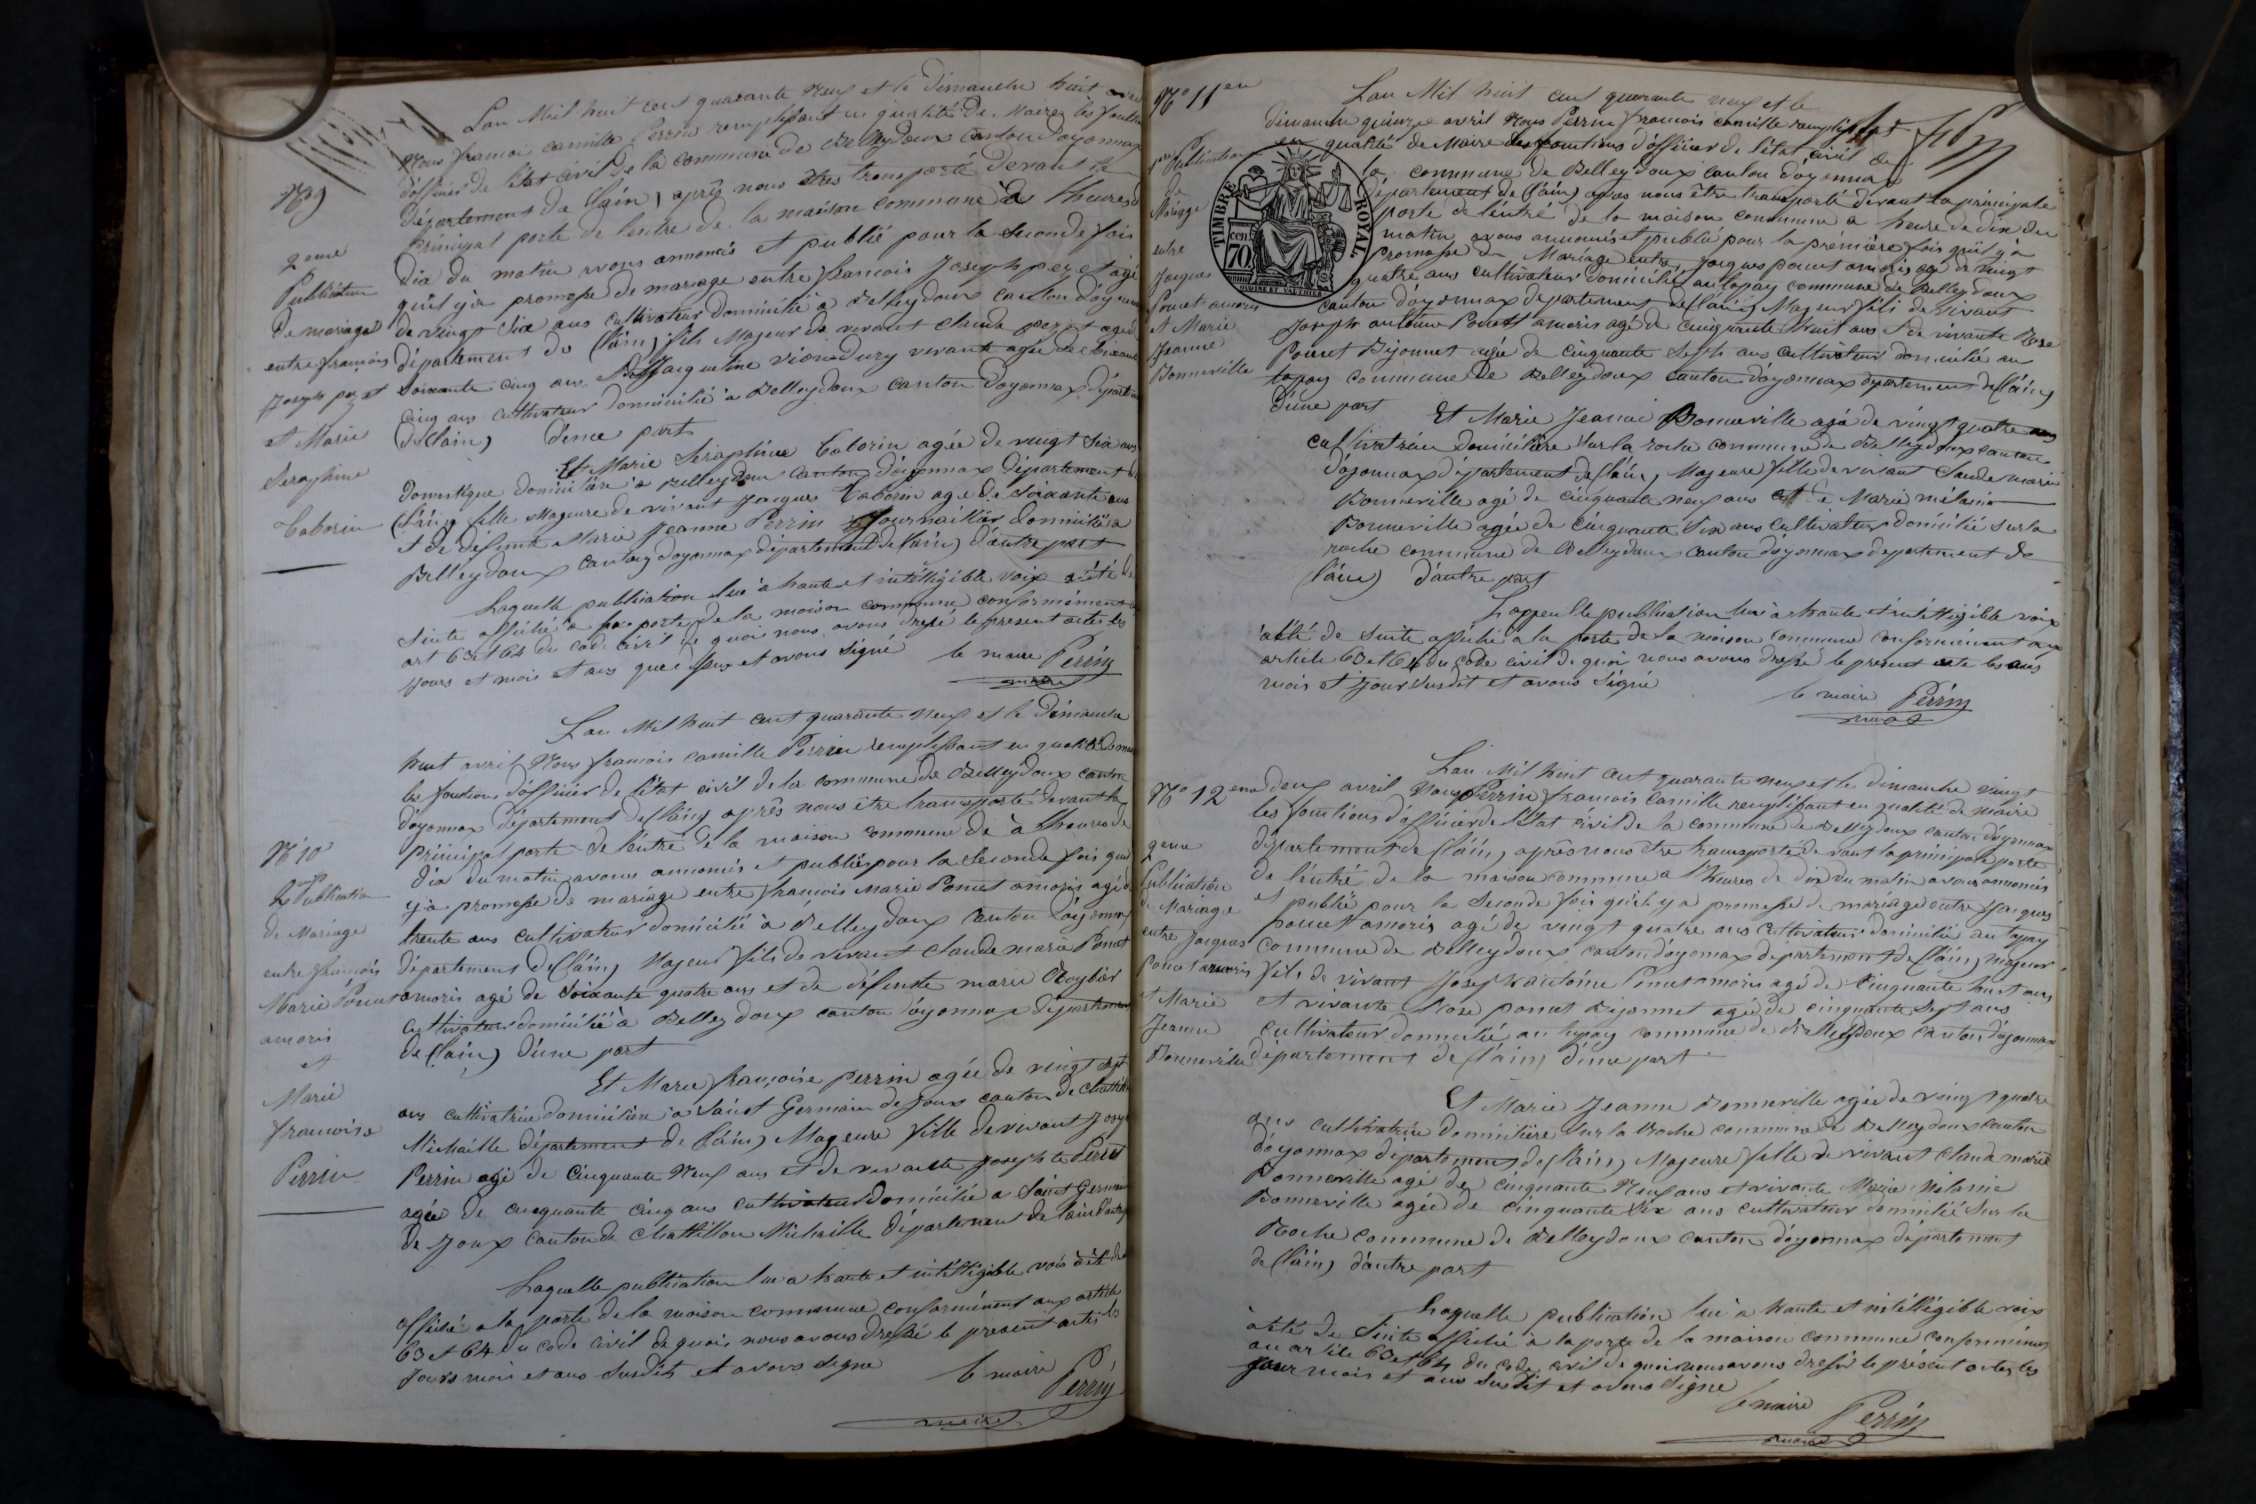 Lan Mil huit cent quarante neuf et le dimanche huit avril
Nous francoi camille Perrin remplissant en qualité de Maire les fonctions
d'officier de l'état civil de la commune de Belleydoux canton d'oyonnax
Département de l'ain, après nous être transporté devant la
Principal porte de l'entre de la maison commune à heures
N°9
2eme
Publication
de mariage
entre françois
Joseph perret
et Marie
Seraphine
Taborin
dix du matin avons annoncés et publié pour la seconde fois
qu'il y a promesse de mariage entre francois Joseph perret agé
de vingt six ans cultivateur domicilié à Belleydoux canton d'oyonnax
département de (l'ain) fils Majeur de vivant claude perret agé
soixante cinq ans Jacqueline vivante agée de
cinq ans cultivateur domicilié à Belleydoux canton d'oyonnax département
de (l'ain) d'une part
Et Marie Seraphine Taborin agée de vingt six ans
Domestique domicilière à Belleydoux canton d'oyonnax département de
(l'ain) fille Majeure de vivant Jacques Taborin age de soixante ans
et de défunte Marie Jeanne Perrin Journaillier domicilié a
Belleydoux canton d'oyonnax département de l'ain) d'autre part
Laquelle publication lue à haute et intélligible voix a été de
suite affiché à la porte de la maison commune conformément
art 63 et 64 du code civil de quoi nous avons dressé le présent acte les
jours et mois et ans que dessus et avons signé le maire Perrin
maire
Lan Mil huit cent quarante neuf et le dimanche
huit avril Nous francois camille Perrin remplissant en qualité de maire
les fonctions d'officier de l'état civil de la commune de Belleydoux canton
d'oyonnax département de (l'ain) après nous être transporté devant la
principal porte de l'entre de la maison commune de à heures de
N°10
2e Publication
de Mariage
entre françois
Marie Poncet
amoris
et
Marie
francoise
Perrin
dix du matin avons annoncés et publiés pour la seconde fois quil
y a promesse de mariage entre francois Marie Poncet amoris agé de
trente ans cultivateur domicilié à Belleydoux canton d'oyonnax
département de (l'ain) Majeur fils de vivant claude marie Poncet
amoris agé de soixante quatre ans et de défunte marie
cultivateur domicilié à Belleydoux canton d'oyonnax département
de (l'ain) d'une part
Et Marie françoise perrin agée de vingt sept
ans cultivatrice domicilière a saint Germain de Joux canton de chatillon
Michaille département de (l'ain) Mageure fille de vivant Joseph
Perrin agé de cinquante neuf ans et de vivante Josephte Perret
agée de cinquante cinq ans cultivateur domicilié a Saint Germain
de Joux canton de chattillon Michaille département de l'ain d'autre
Laquelle publication lue a haute et intélligible voix à été de
affiché a la porte de la maison commune conformément aux article
63 et 64 du code civil de quoi nous avons dressé le présent acte les
jours mois et ans susdits et avons signé le maire Perrin
maire
N° 11en
1er Publication
de
Mariage
entre
Jacques
Poncet amoris
et Marie
Jeanne
Bonneville
TIMBRE ROYAL
70 cen
Lan Mil huit cent quarante neuf et le
dimanche quinze avril Nous Perrin francois camille remplissant
en qualité de Maire des fonctions d'officier de l'état civil de
la commune de Belleydoux canton d'oyonnax
département de (l'ain) apres nous être transporté devant la principale
porte de l'entré de la maison commune a heure de dix du
matin avons annoncés et publié pour la première fois qu'il y à
Promesse de Mariage entre Jacques poncet amoris agé de vingt
quatre ans cultivateur domicilié au lapay commune de Belleydoux
canton d'oyonnax departement de (l'ain) Mageur fils de vivant
Joseph antoine Poncet amoris agé de cinquante huit ans et de vivante Rose
Poncet Bijonnet agée de cinquante sept ans cultivateur domicilié au
lapay commune de Belleydoux canton d'oyonnax département de (l'ain)
d'une part Et Marie Jeanne Bonneville agé de vingt quatre ans
cultivatrice domicilière sur la roche commune de Belleydoux canton
d'oyonnax département de (l'ain), Mageure fille de vivant Claude marie
Bonneville agé de cinquante neuf ans et de Marie mélanie
Bonneville agée de cinquante six ans cultivateur domicilié sur la
roche commune de Belleydoux canton d'oyonnax departement de
(l'ain) d'autre part
Laquelle publication lue à haute et intélligible voix
a été de suite affiché a la porte de la maison commune conformément aux
article 63 et 64 du code civil de quoi nous avons dressé le present acte les ans
mois et jour susdit et avons signé
le maire Perrin
maire
N° 12eme
2eme
Publication
de Mariage
entre Jacques
Poncet amoris
et Marie
Jeanne
Bonneville
Lan Mil huit cent quarante neuf et le dimanche vingt
deux avril Nous Perrin francois camille remplissant en qualité de maire
les fonctions d'officier de l'état civil de la commune de Belleydoux canton d'oyonnax
département de (l'ain), après nous être transporté devant la principale porte
de l'entré de la maison commune a heures de dix du matin avons annoncés
et publié pour la seconde fois qu'il y a promesse de mariage entre Jacques
poncet amoris agé de vingt quatre ans cultivateur domicilié au lapay
commune de Belleydoux canton d'oyonnax département de (l'ain) mageur
fils de vivant Joseph antoine Poncet amoris agé de cinquante huit ans
et vivante Rose poncet Bijonnet agé de cinquante sept ans
cultivateur domicilié au lapay commune de Belleydoux canton d'oyonnax
département de (l'ain) d'une part
Et Marie Jeanne Bonneville agée de vingt quatre
ans cultivatrice domicilière sur la Roche commune de Belleydoux canton
d'oyonnax département de (l'ain) Majeure fille de vivant claude marie
Bonneville agé de cinquante Neuf ans et vivante Marie Mélanie
Bonneville agée de cinquante six ans cultivateur domicilié sur la
Roche commune de Belleydoux canton d'oyonnax département
de (l'ain) d'autre part
Laquelle publication lue à haute et intélligible voix
a été de suite affiché à la porte de la maison commune conformément
au article 63 et 64 du code civil de quoi nous avons dressé le présent acte les
jour mois et ans susdit et avons signé
le maire Perrin
maire